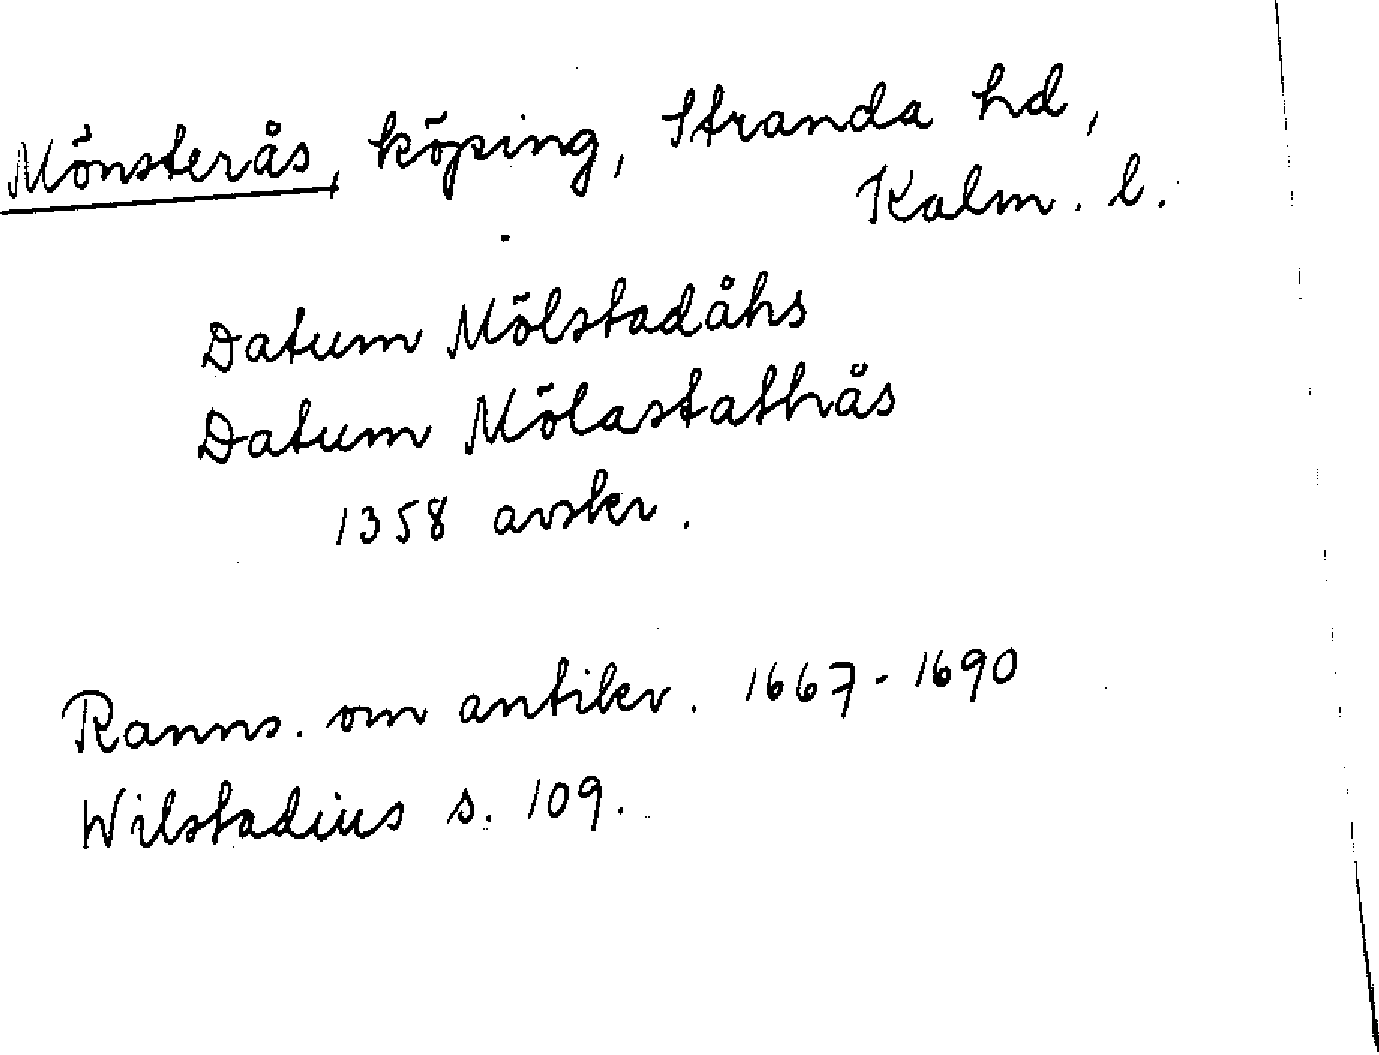 Mönsterås, köping, Stranda hd,
Kalm. l.
Datum Mölstadåhs
Datum Mölastathås
1358 avskr.
Ranns. om antikv. 1667-1690
Wilstadius s. 109.